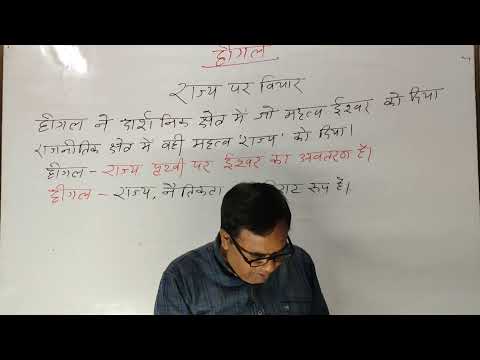 हीगल
राज्य पर विचार
हीगल ने दार्शनिक क्षेत्र में जो महत्व ईश्वर को दिया
राजनीतिक क्षेत्र में वही महत्व 'राज्य' को दिया।
हीगल - राज्य पृथ्वी पर ईश्वर का अवतरण है।
हीगल - राज्य, नैतिकता रूप है।